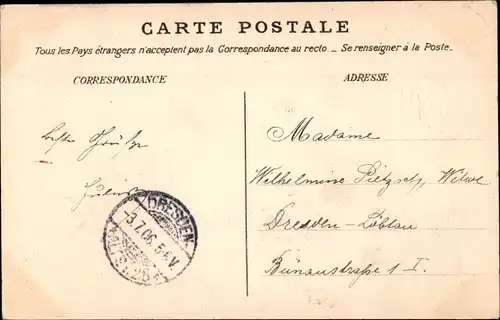 CARTE POSTALE
Tous les Pays étrangers n'acceptent pas la Correspondance au recto. _ Se renseigner à la Poste.
CORRESPONDANCE
ADRESSE
beste Grüße
Madame
Wilhelmine Pietzsch, Witwe
Dresden-Löbtau
Bünaustraße 1 I.
DRESDEN-
3.7.06. 5-6 V.